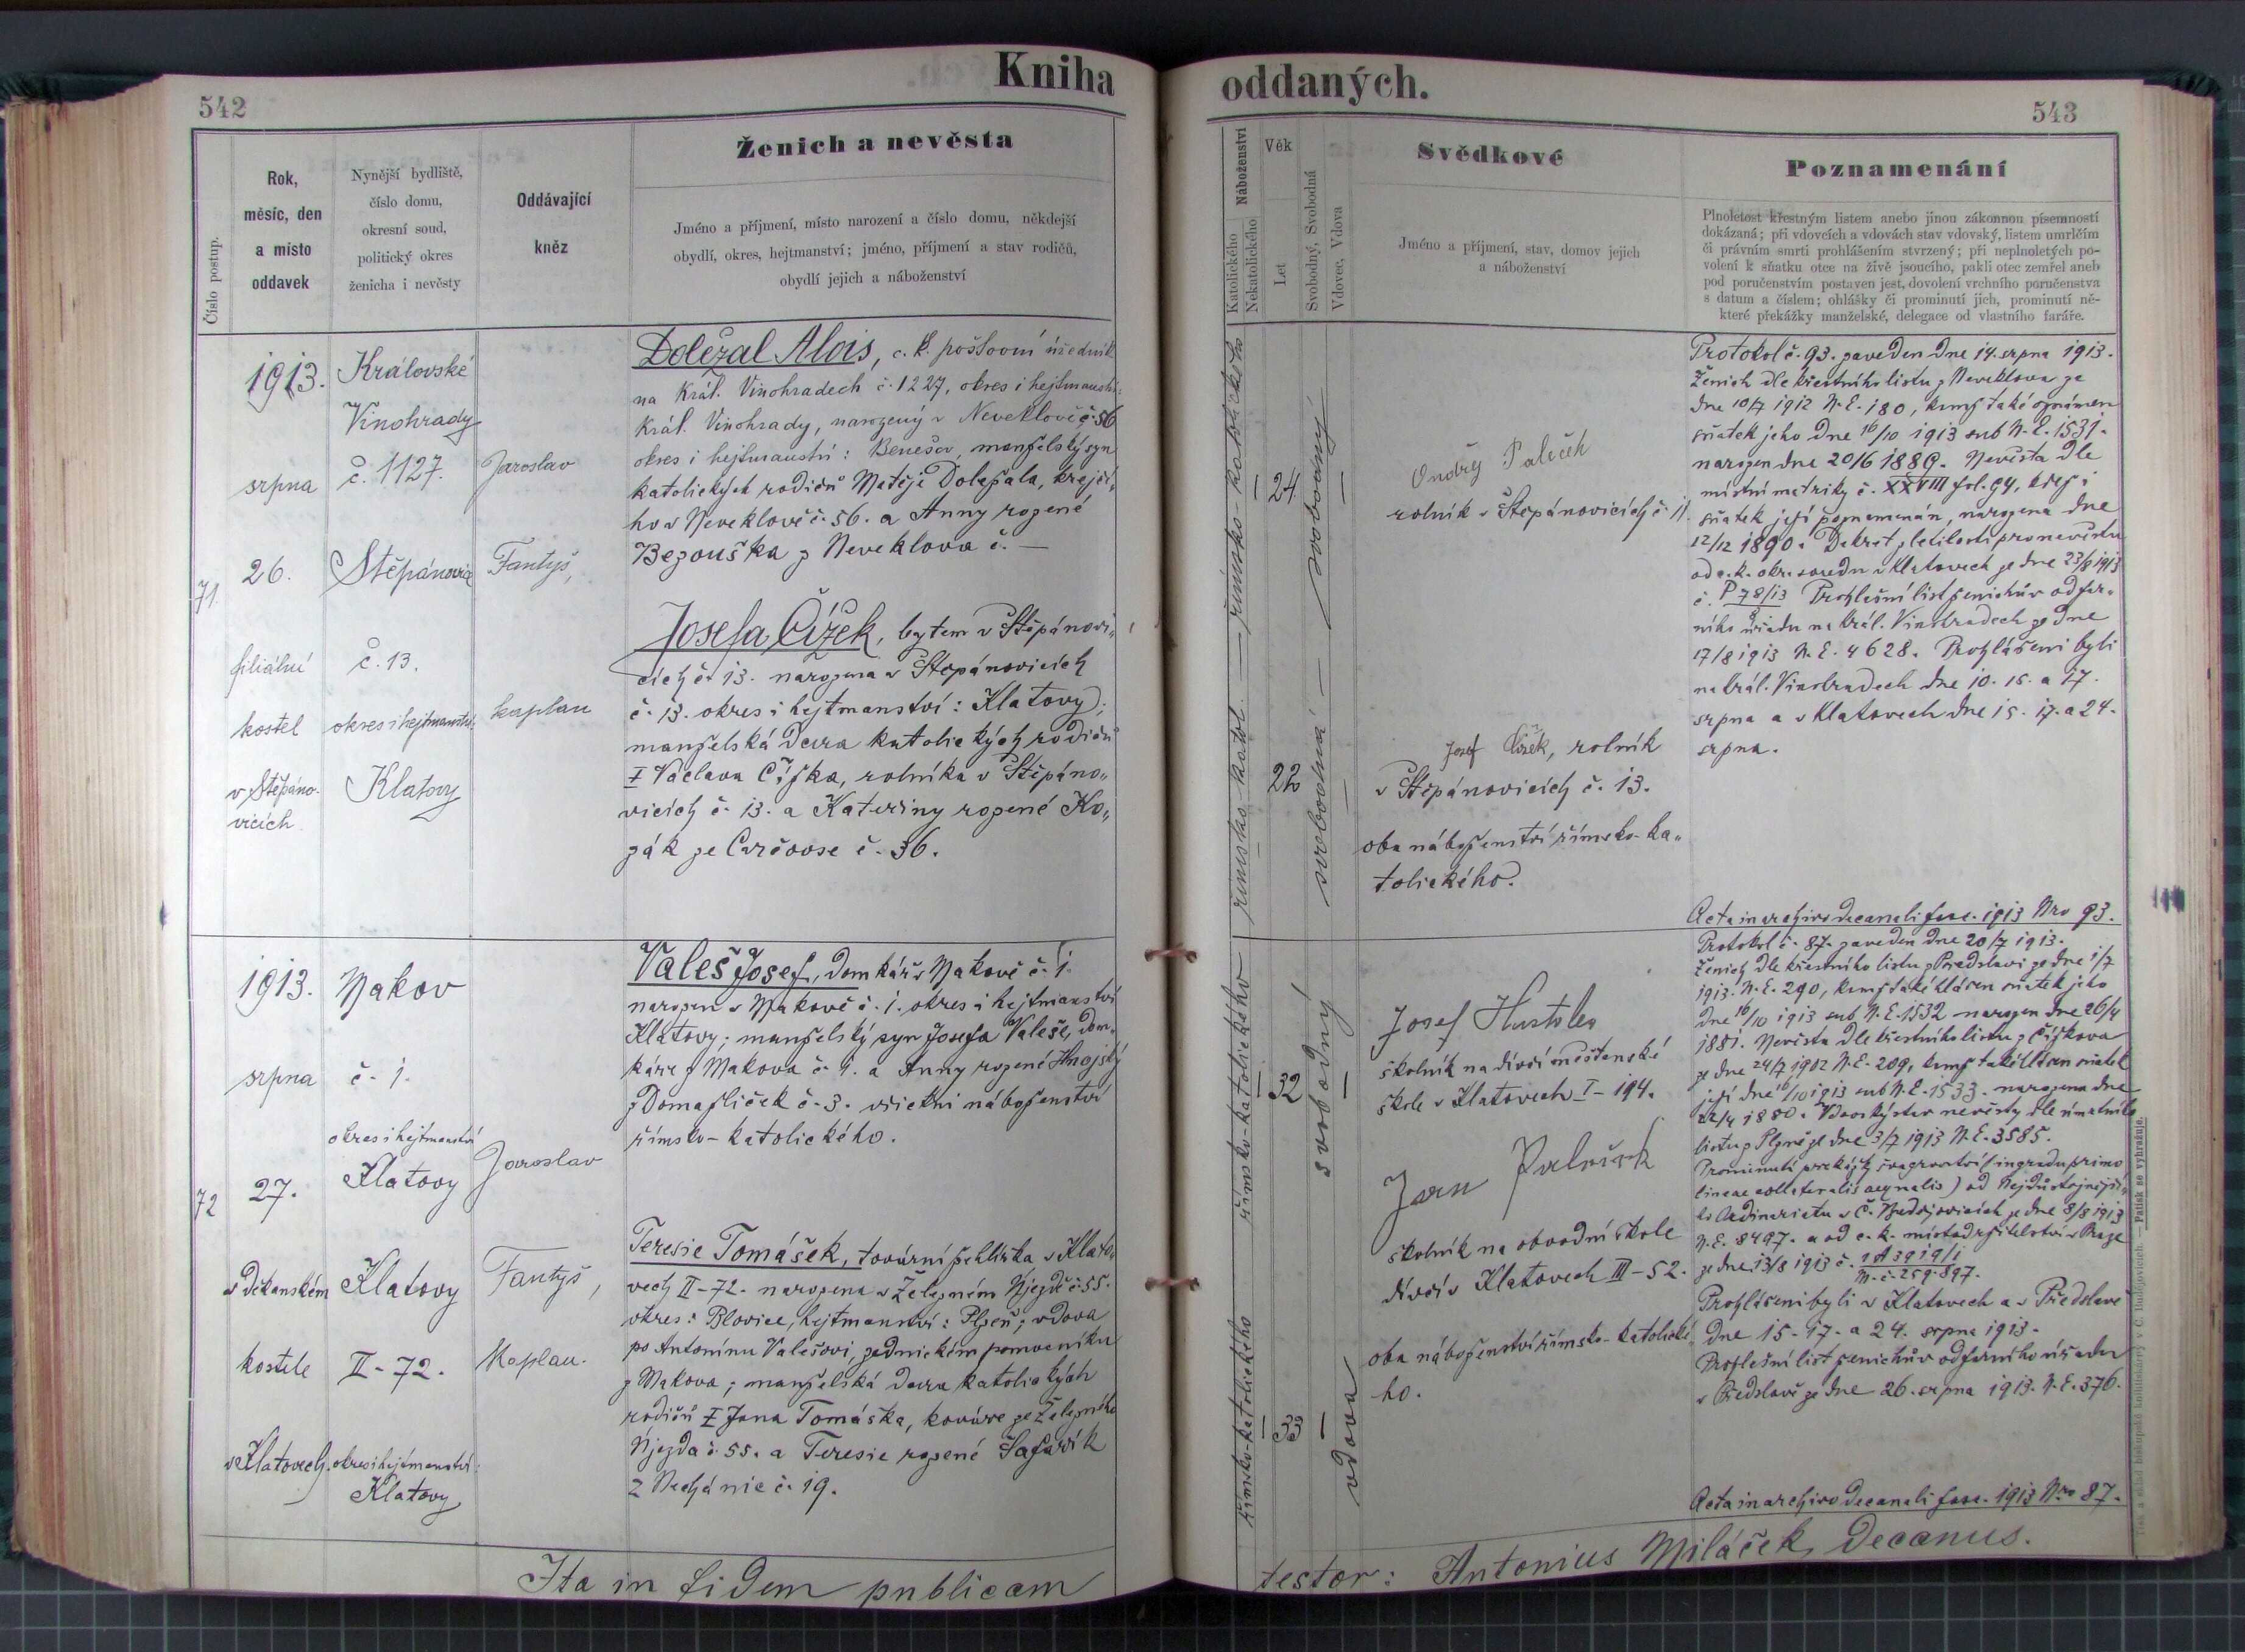 Kniha
542
Číslo postup.
Rok,
měsíc, den
a místo
oddavek
Nynější bydliště,
číslo domu,
okresní soud,
politický okres
ženicha i nevěsty
Oddávající
kněz
Ženich a nevěsta
Jméno a příjmení, místo narození a číslo domu, někdejší
obydlí, okres, hejtmanství; jméno, příjmení a stav rodičů,
obydlí jejich a náboženství
71.
1913.
srpna
26.
filiální
kostel
v Štěpáno-
vicích
Královské
Vinohrady
č. 1127.
Štěpánovic
č. 13.
okres i hejtmanství:
Klatovy
Jaroslav
Fantyš,
kaplan
Doležal Alois, c. k. poštovní úředník
na Král. Vinohradech č. 1227, okres i hejtmanství:
Král. Vinohrady, narozený v Neveklově č. 56
okres i hejtmanství: Benešov, manželský syn
katolických rodičů Matěje Doležala, krejčí-
ho v Neveklově č. 56. a Anny rozené
Bezouška z Neveklova č. —
Josefa Čížek, bytem v Štěpánovi-
cích č. 13. narozena v Štěpánovicích
č. 13. okres i hejtmanství: Klatovy;
manželská dcera katolických rodičů
Václava Čížka, rolníka v Štěpáno-
vicích č. 13. a Kateřiny rozené Ko-
zák ze č. 36.
72
1913.
srpna
27.
v děkanském
kostele
v Klatovech.
Makov
č. 1.
okres i hejtmanství
Klatovy
Klatovy
II - 72.
okres i hejtmanství:
Klatovy
Jaroslav
Fantyš,
kaplan.
Valeš Josef, domkář v Makově č. 1.
narozen v Makově č. 1. okres i hejtmanství
Klatovy; manželský syn Josefa Valeše, dom-
káře z Makova č. 1. a Anny rozené Hnojský
z Domažliček č. 3. všickni náboženství
římsko-katolického.
Teresie Tomášek, tovární žehlířka v Klato-
vech II - 72. narozena v Železném Újezdě č. 55.
okres: Blovice, hejtmanství: Plzeň; vdova
po Antonínu Valešovi, zednickém pomocníku
z Makova; manželská dcera katolických
rodičů Jana Tomáška, kováře ze Železného
Újezda č. 55. a Teresie rozené Šafařík
z Nechánic č. 19.
Ita in fidem publicam
oddaných.
543
Náboženství
Katolického
Nekatolického
Věk
Let
Svobodný, Svobodná
Vdovec, Vdova
Svědkové
Jméno a příjmení, stav, domov jejich
a náboženství
Poznamenání
Plnoletost křestným listem anebo jinou zákonnou písemností
dokázaná; při vdovcích a vdovách stav vdovský, listem umrlčím
či právním smrti prohlášením stvrzený; při neplnoletých po-
volení k sňatku otce na živě jsoucího, pakli otec zemřel aneb
pod poručenstvím postaven jest, dovolení vrchního poručenstva
s datum a číslem; ohlášky či prominutí jich, prominutí ně-
které překážky manželské, delegace od vlastního faráře.
římsko-katolického
24
svobodný
římsko katol.
22
svobodná
Ondřej Paleček
rolník v Štěpánovicích č. 11.
Josef Čížek, rolník
v Štěpánovicích č. 13.
oba náboženství římsko-ka-
tolického.
Protokol č. 93. zaveden dne 14. srpna 1913.
Ženich dle křestního listu z Neveklova ze
dne 10/7 1912 N. E. 180, kamž také oznámen
sňatek jeho dne 16/10 1913 sub N. E. 1531.
narozen dne 20/6 1889. Nevěsta dle
místní matriky č. XXVIII fol. 94, kdež i
sňatek její poznamenán, narozena dne
12/12 1890. Dekret zletilosti pro nevěstu
od c. k. okr. soudu v Klatovech ze dne 23/8 1913
č. P 78/13 Prohlešní list ženichův od far-
ního úřadu na Král. Vinohradech ze dne
17/8 1913 N. E. 4628. Prohlášeni byli
na Král. Vinohradech dne 10. 15. a 17.
srpna a v Klatovech dne 15. 17. a 24.
srpna.
Acta in archivo decanali fasc. 1913 Nro 93.
římsko-katolického
32
svobodný
římsko-katolického
33
vdova
Josef
školník na dívčí měšťanské
škole v Klatovech I - 194.
Jan
školník na obvodní škole
dívčí v Klatovech III - 52.
oba náboženství římsko-katolické-
ho.
Protokol č. 87. zaveden dne 20/7 1913.
Ženich dle křestního listu z Předslavi ze dne 1/7
1913. N. E. 290, kamž také hlášen sňatek jeho
dne 16/10 1913 sub N. E. 1532 narozen dne 26/4
1881. Nevěsta dle křestního listu z Čížkova
ze dne 24/7 1902 N. E. 209, kamž také hlášen sňatek
její dne 16/10 1913 sub N. E. 1533. narozena dne
22/4 1880. Vdovský stav nevěsty dle úmrtního
listu z Plzně ze dne 3/7 1913 N. E. 3585.
Prominutí překážky švagrovství (in gradu primo
lineae collateralis aequalis) od Nejdůstojnější-
ho Ordinariatu v Č. Budějovicích ze dne 8/8 1913
N. E. 8497. a od c. k. místodržitelství v Praze
ze dne 13/8 1913 č.
Prohlášeni byli v Klatovech a v Předslavě
dne 15. 17. a 24. srpna 1913.
Prohlešní list ženichův od farního úřadu
v Předslavě ze dne 26. srpna 1913. N. E. 376.
Acta in archivo decanali fasc. 1913 Nro 87.
testor: Antonius Miláček, Decanus.
Patisk se vyhražuje.